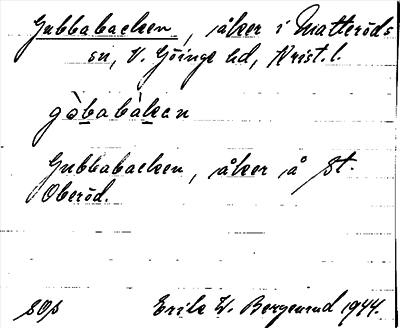 Gubbabacken, åker i Matteröds
sn, V. Göinge hd, Krist. l.
gòbabàkan
Gubbabacken, åker å St.
Oberöd.
SOp Erik W. Bergenrud 1944.